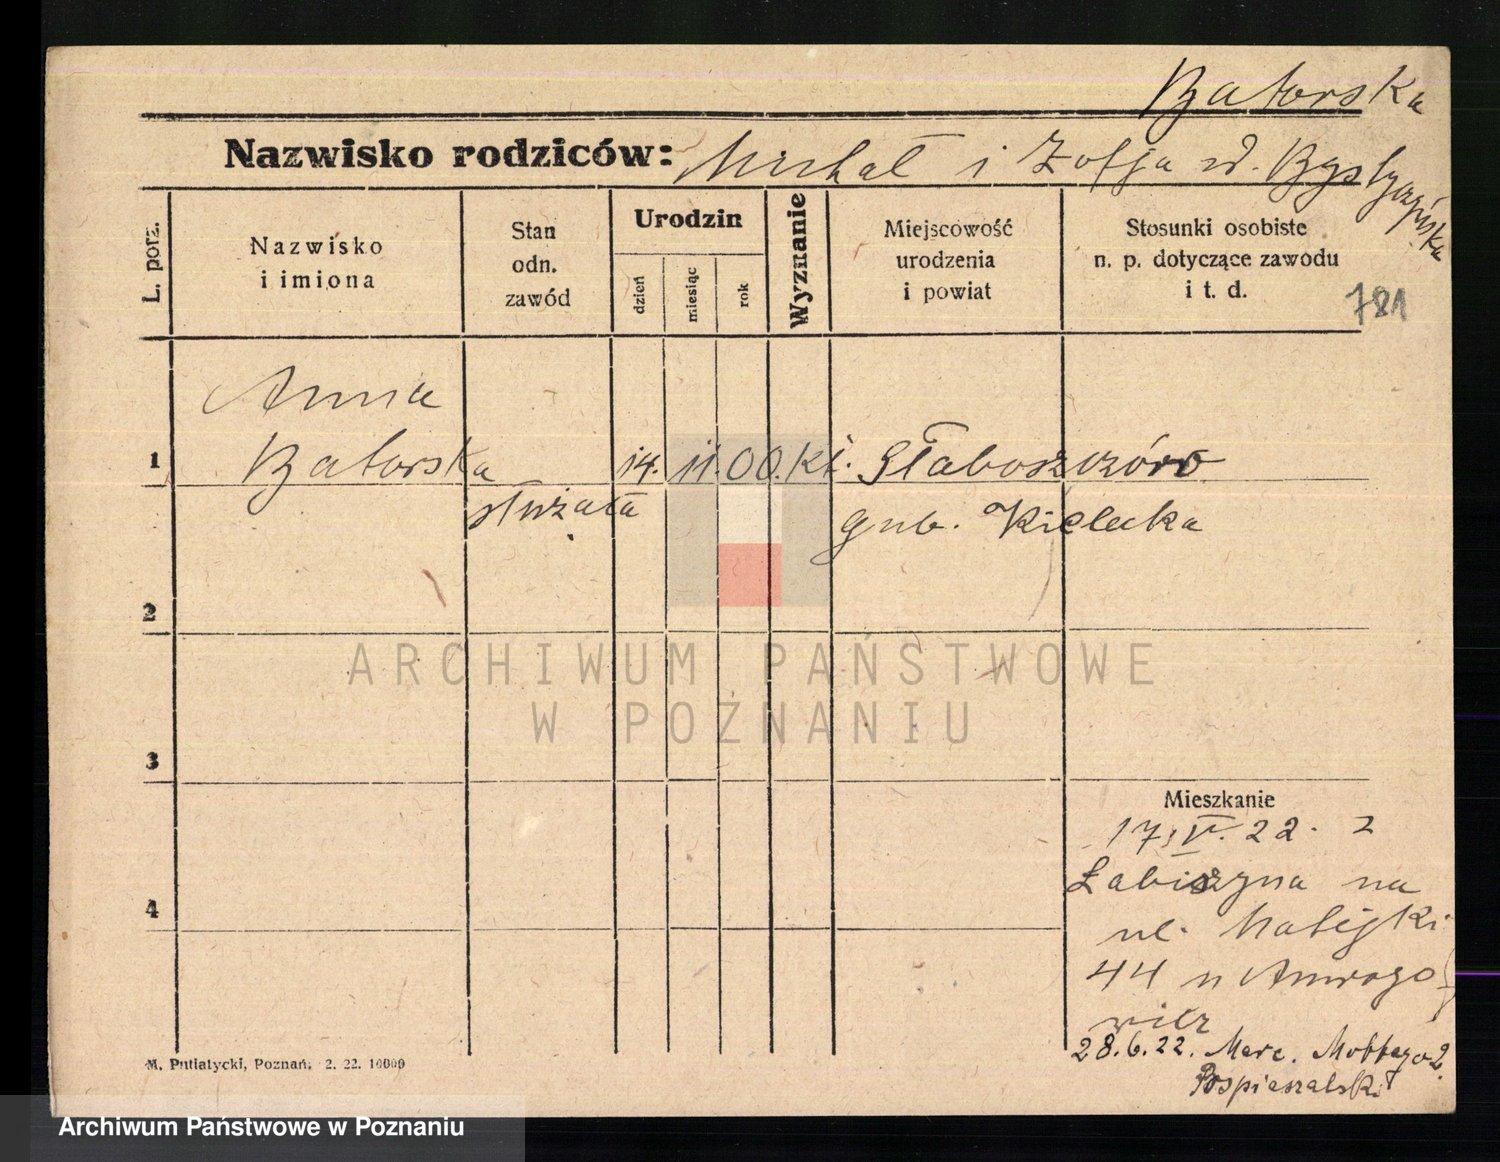 Batorska
Nazwisko rodziców: Michał i Zofja zd. Bystrzyńska
L. porz.
Nazwisko
i imiona
Stan
odn.
zawód
Urodzin
dzień
miesiąc
rok
Wyznanie
Miejscowość
urodzenia
i powiat
Stosunki osobiste
n. p. dotyczące zawodu
i t. d.
781
Anna
1 Batorska 14. 11. 00. kt. Słaboszczów
służąca
gub. Kielecka
2
ARCHIWUM PAŃSTWOWE
W POZNANIU
3
Mieszkanie
17. V. 22. z
Łabiszyna na
ul. Matejki
4
44 u
28.6.22. Marc. 2.
Pospieszalski
M. Putiatycki, Poznań, 2. 22. 10000
Archiwum Państwowe w Poznaniu